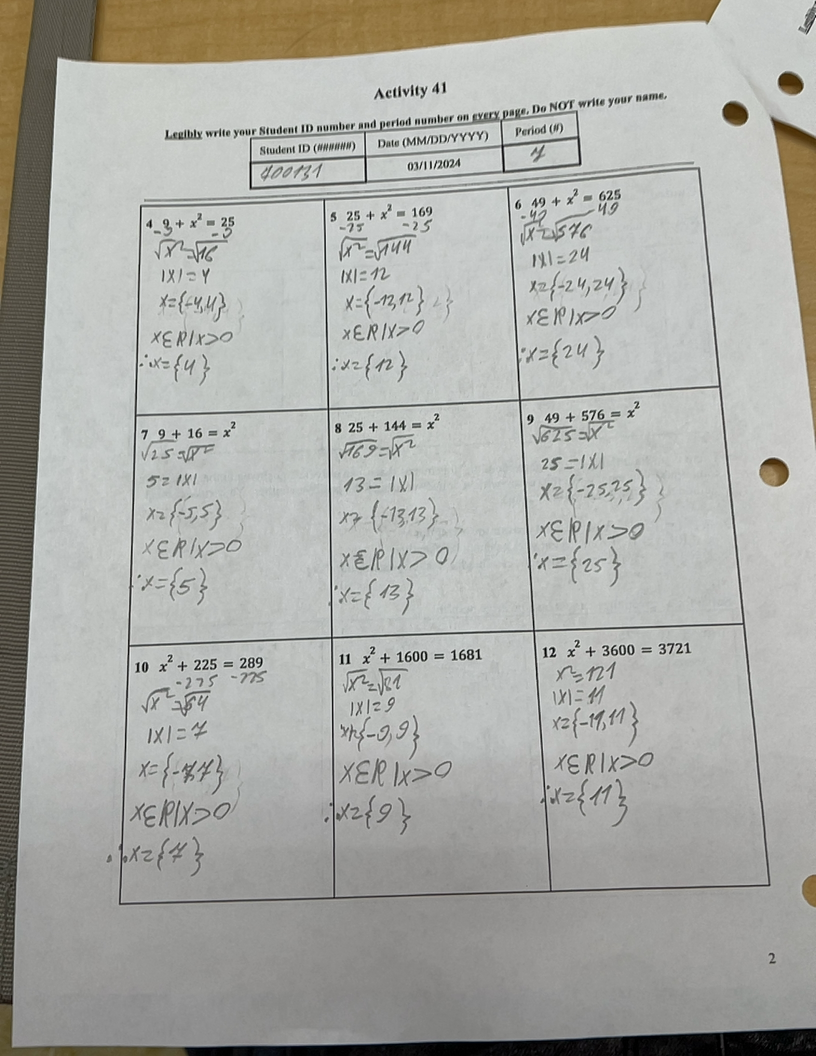 Activity 41
Legibly write your Student ID number and period number on every page. Do NOT write your name.
Student ID (######) Date (MM/DD/YYYY) Period (#)
700131 03/11/2024 7
4 9 + x² = 25
-9 -9
√x²=√16
|x|=4
x={-4,4}
xεR|x>0
∴x={4}
5 25 + x² = 169
-25 -25
√x²=√144
|x|=12
x={-12,12}
xεR|x>0
∴x={12}
6 49 + x² = 625
-49 -49
√x²=√576
|x|=24
x={-24,24}
xεR|x>0
∴x={24}
7 9 + 16 = x²
√25=√x²
5=|x|
x={-5,5}
xεR|x>0
∴x={5}
8 25 + 144 = x²
√169=√x²
13=|x|
x={-13,13}
xεR|x>0
∴x={13}
9 49 + 576 = x²
√625=√x²
25=|x|
x={-25,25}
xεR|x>0
∴x={25}
10 x² + 225 = 289
-225 -225
√x²=√64
|x|=7
x={-7,7}
xεR|x>0
∴x={7}
11 x² + 1600 = 1681
√x²=√81
|x|=9
x={-9,9}
xεR|x>0
∴x={9}
12 x² + 3600 = 3721
x²=121
|x|=11
x={-11,11}
xεR|x>0
∴x={11}
2